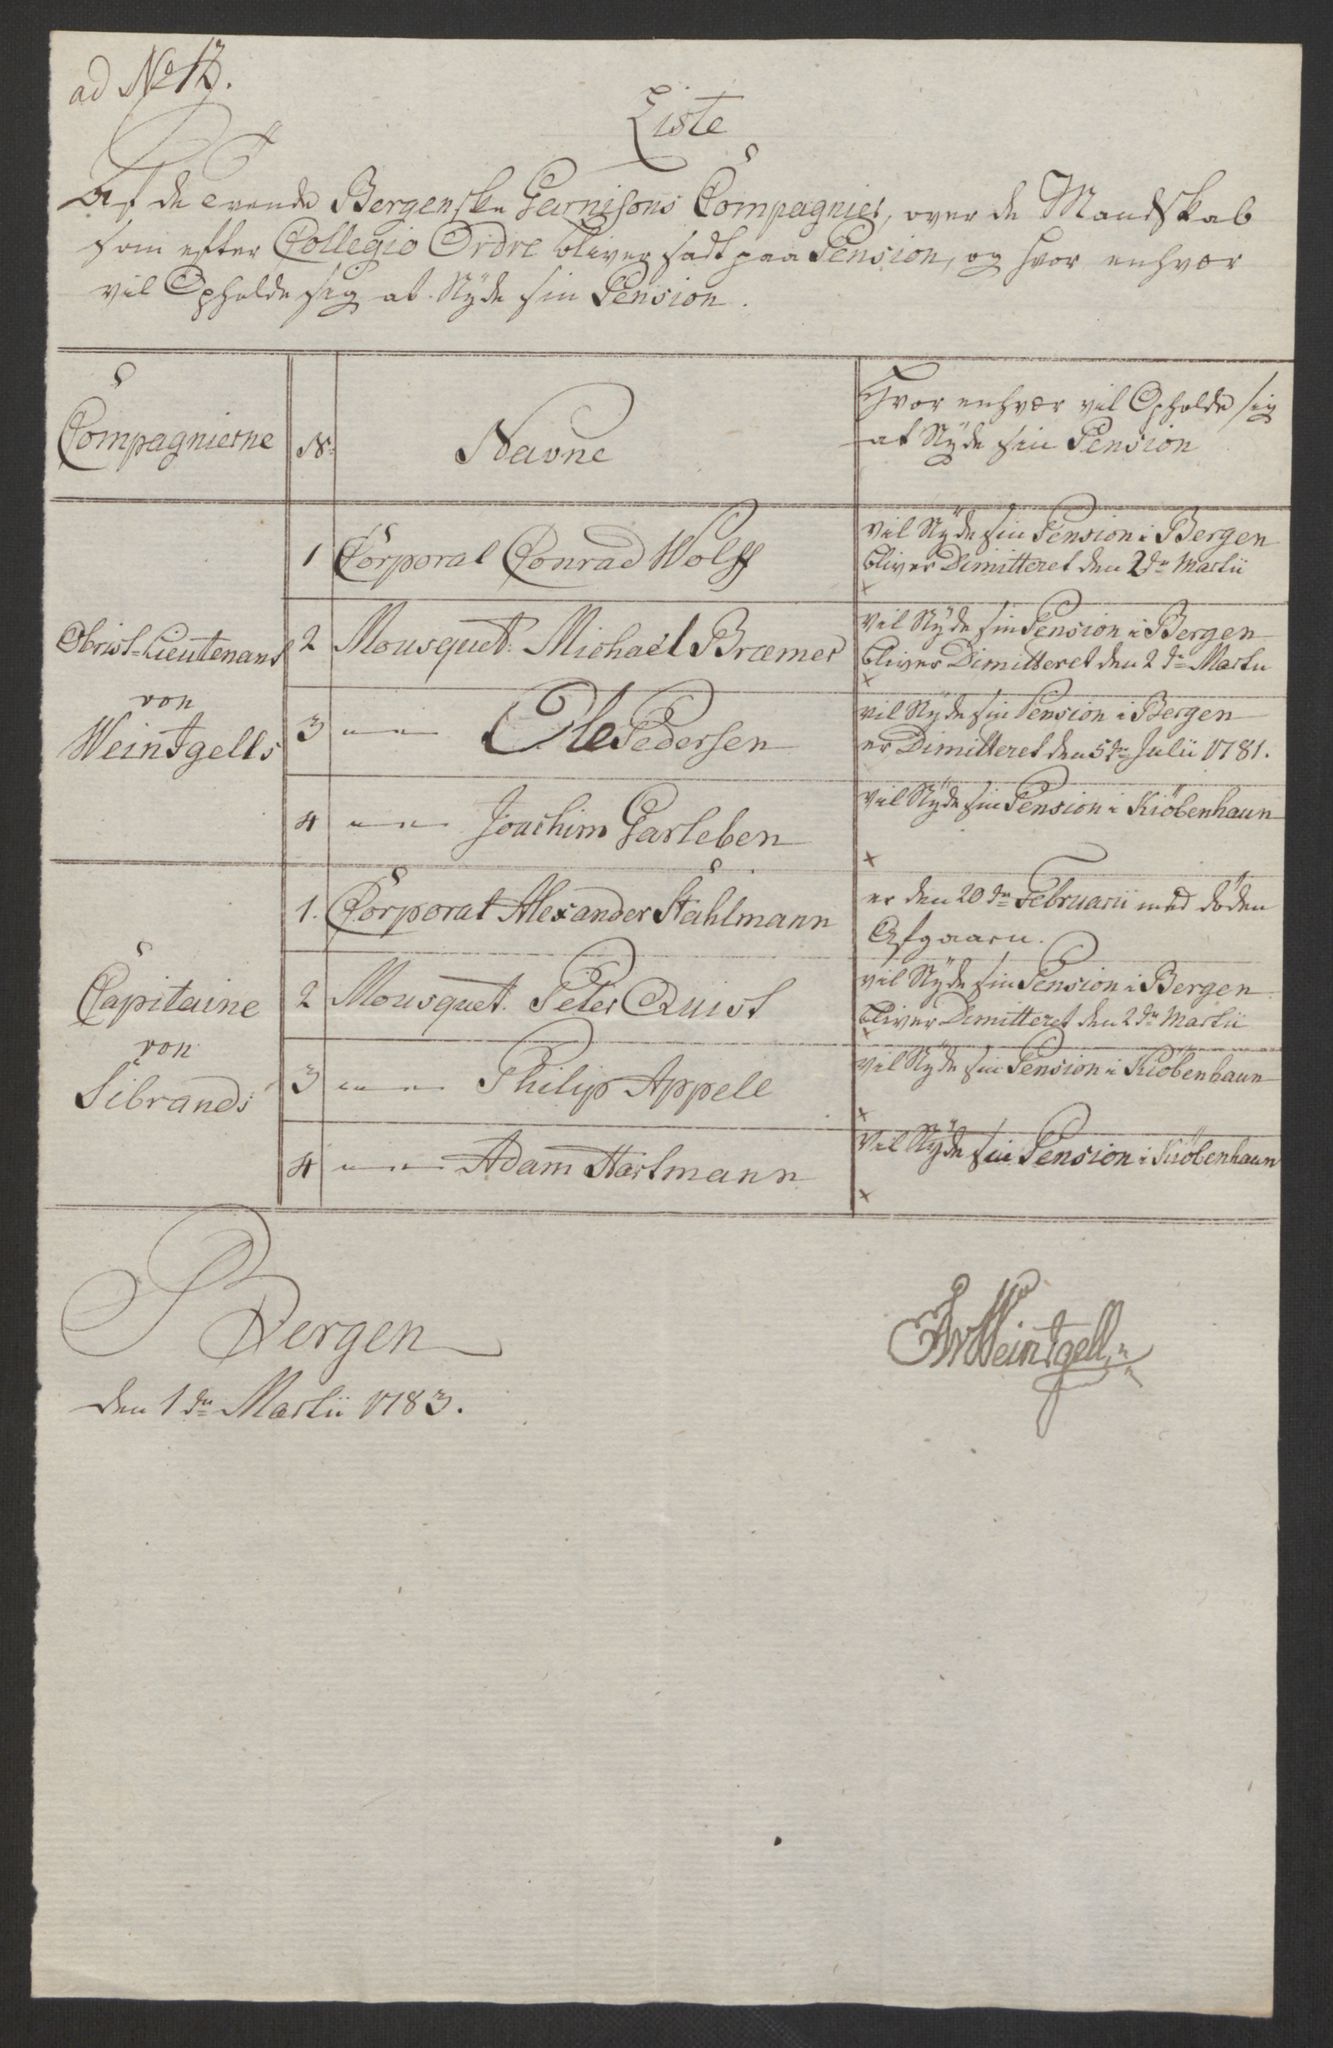 ad No 12.
Liste
Af de tvende Bergenske Garnisons Compagnier, over de Mandskab
som efter Collegio Ordre bliver sadt paa Pension, og hvor enhver
vil Opholde sig at Nyde sin Pension.
Compagnierne
No
Navne
Hvor enhver vil Opholde sig
at Nyde sin Pension
Obrist-Lieutenant
von
Weintgells
1 Corporal Conrad Wolff
vil Nyde sin Pension i Bergen
bliver Dimitteret den 2den Martii
2 Mousquet: Michael Bræmer
vil Nyde sin Pension i Bergen
bliver Dimitteret den 2den Martii
3 Ole Pedersen
vil Nyde sin Pension i Bergen
er Dimitteret den 5ten Julii 1781.
4 Joachim Garleben
vil Nyde sin Pension i Kiöbenhaun
Capitaine
von
Sibrands
1. Corporal Alexander Stahlmann
er den 20den Februarii med døden
Afgaaen.
2 Mousquet. Peter Quist
vil Nyde sin Pension i Bergen
bliver Dimitteret den 2den Martii
3 Philip Appell
vil Nyde sin Pension i Kiöbenhaun
4 Adam Hartmann
vil Nyde sin Pension i Kiöbenhaun
Bergen
den 1den Martii 1783.
Weintgell